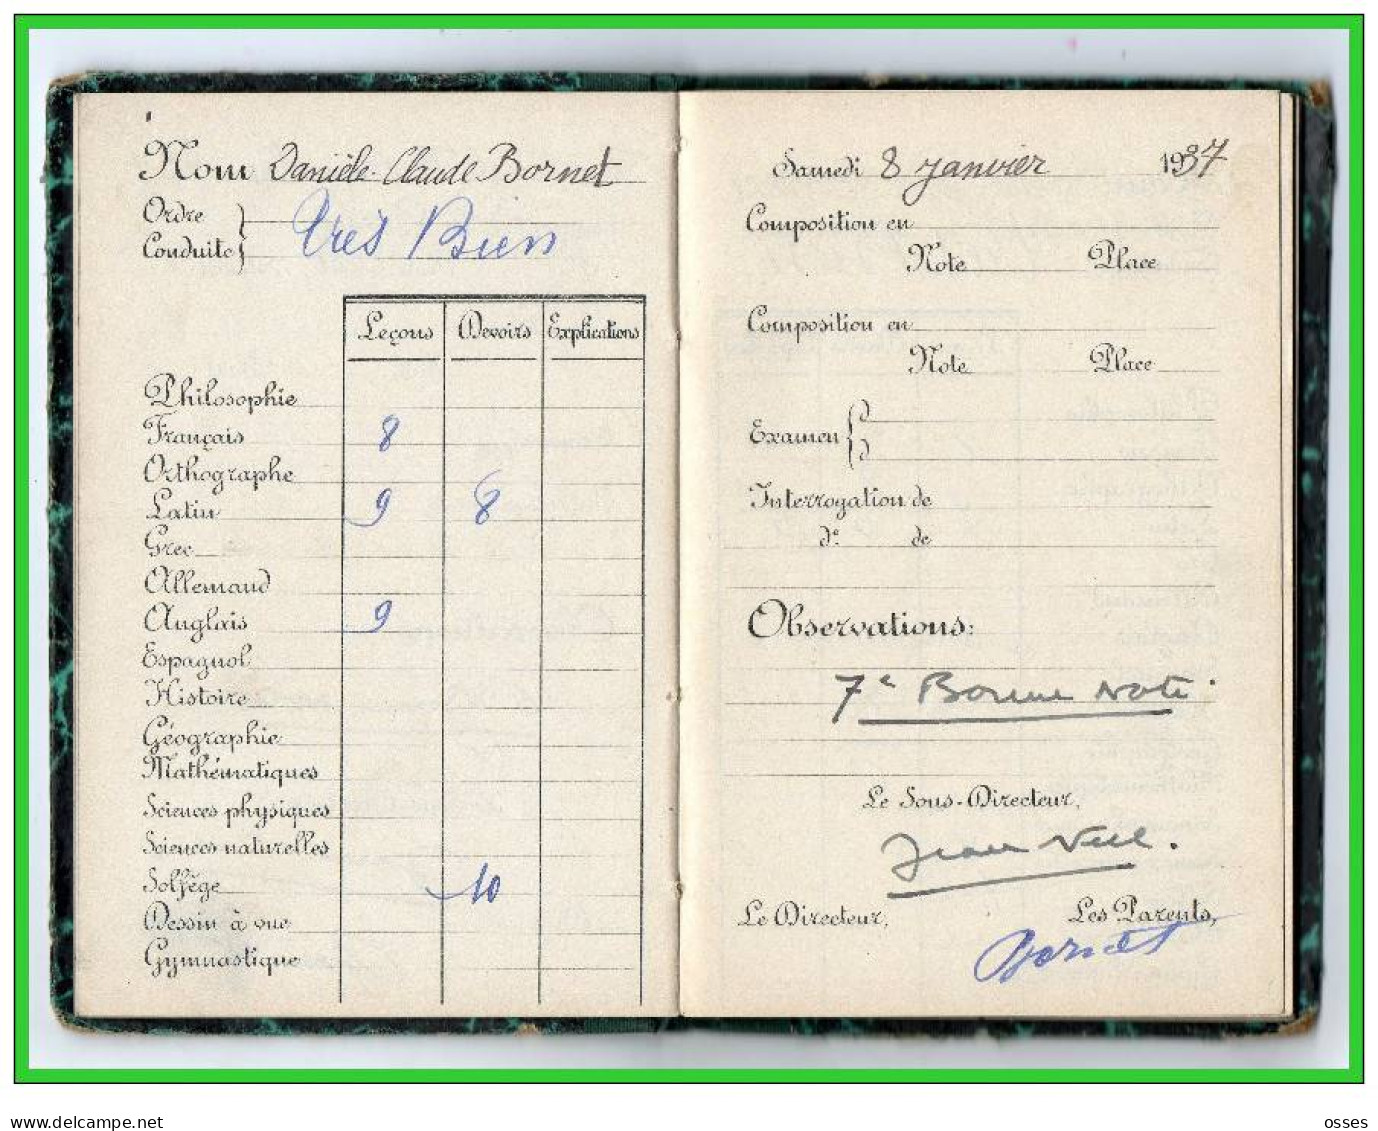 Nom Danièle-Claude Bornet
Ordre
Conduite
Très Bien
Leçons Devoirs Explications
Philosophie
Français 8
Orthographe
Latin 9 8
Grec
Allemand
Anglais 9
Espagnol
Histoire
Géographie
Mathématiques
Sciences physiques
Sciences naturelles
Solfège 10
Dessin à vue
Gymnastique
Samedi 8 janvier 1937
Composition en
Note Place
Composition en
Note Place
Examen
Interrogation de
do. de
Observations:
7e Bonne Note.
Le Sous-Directeur,
Jean
Le Directeur, Les Parents,
Bornet
delcampe.net
osses